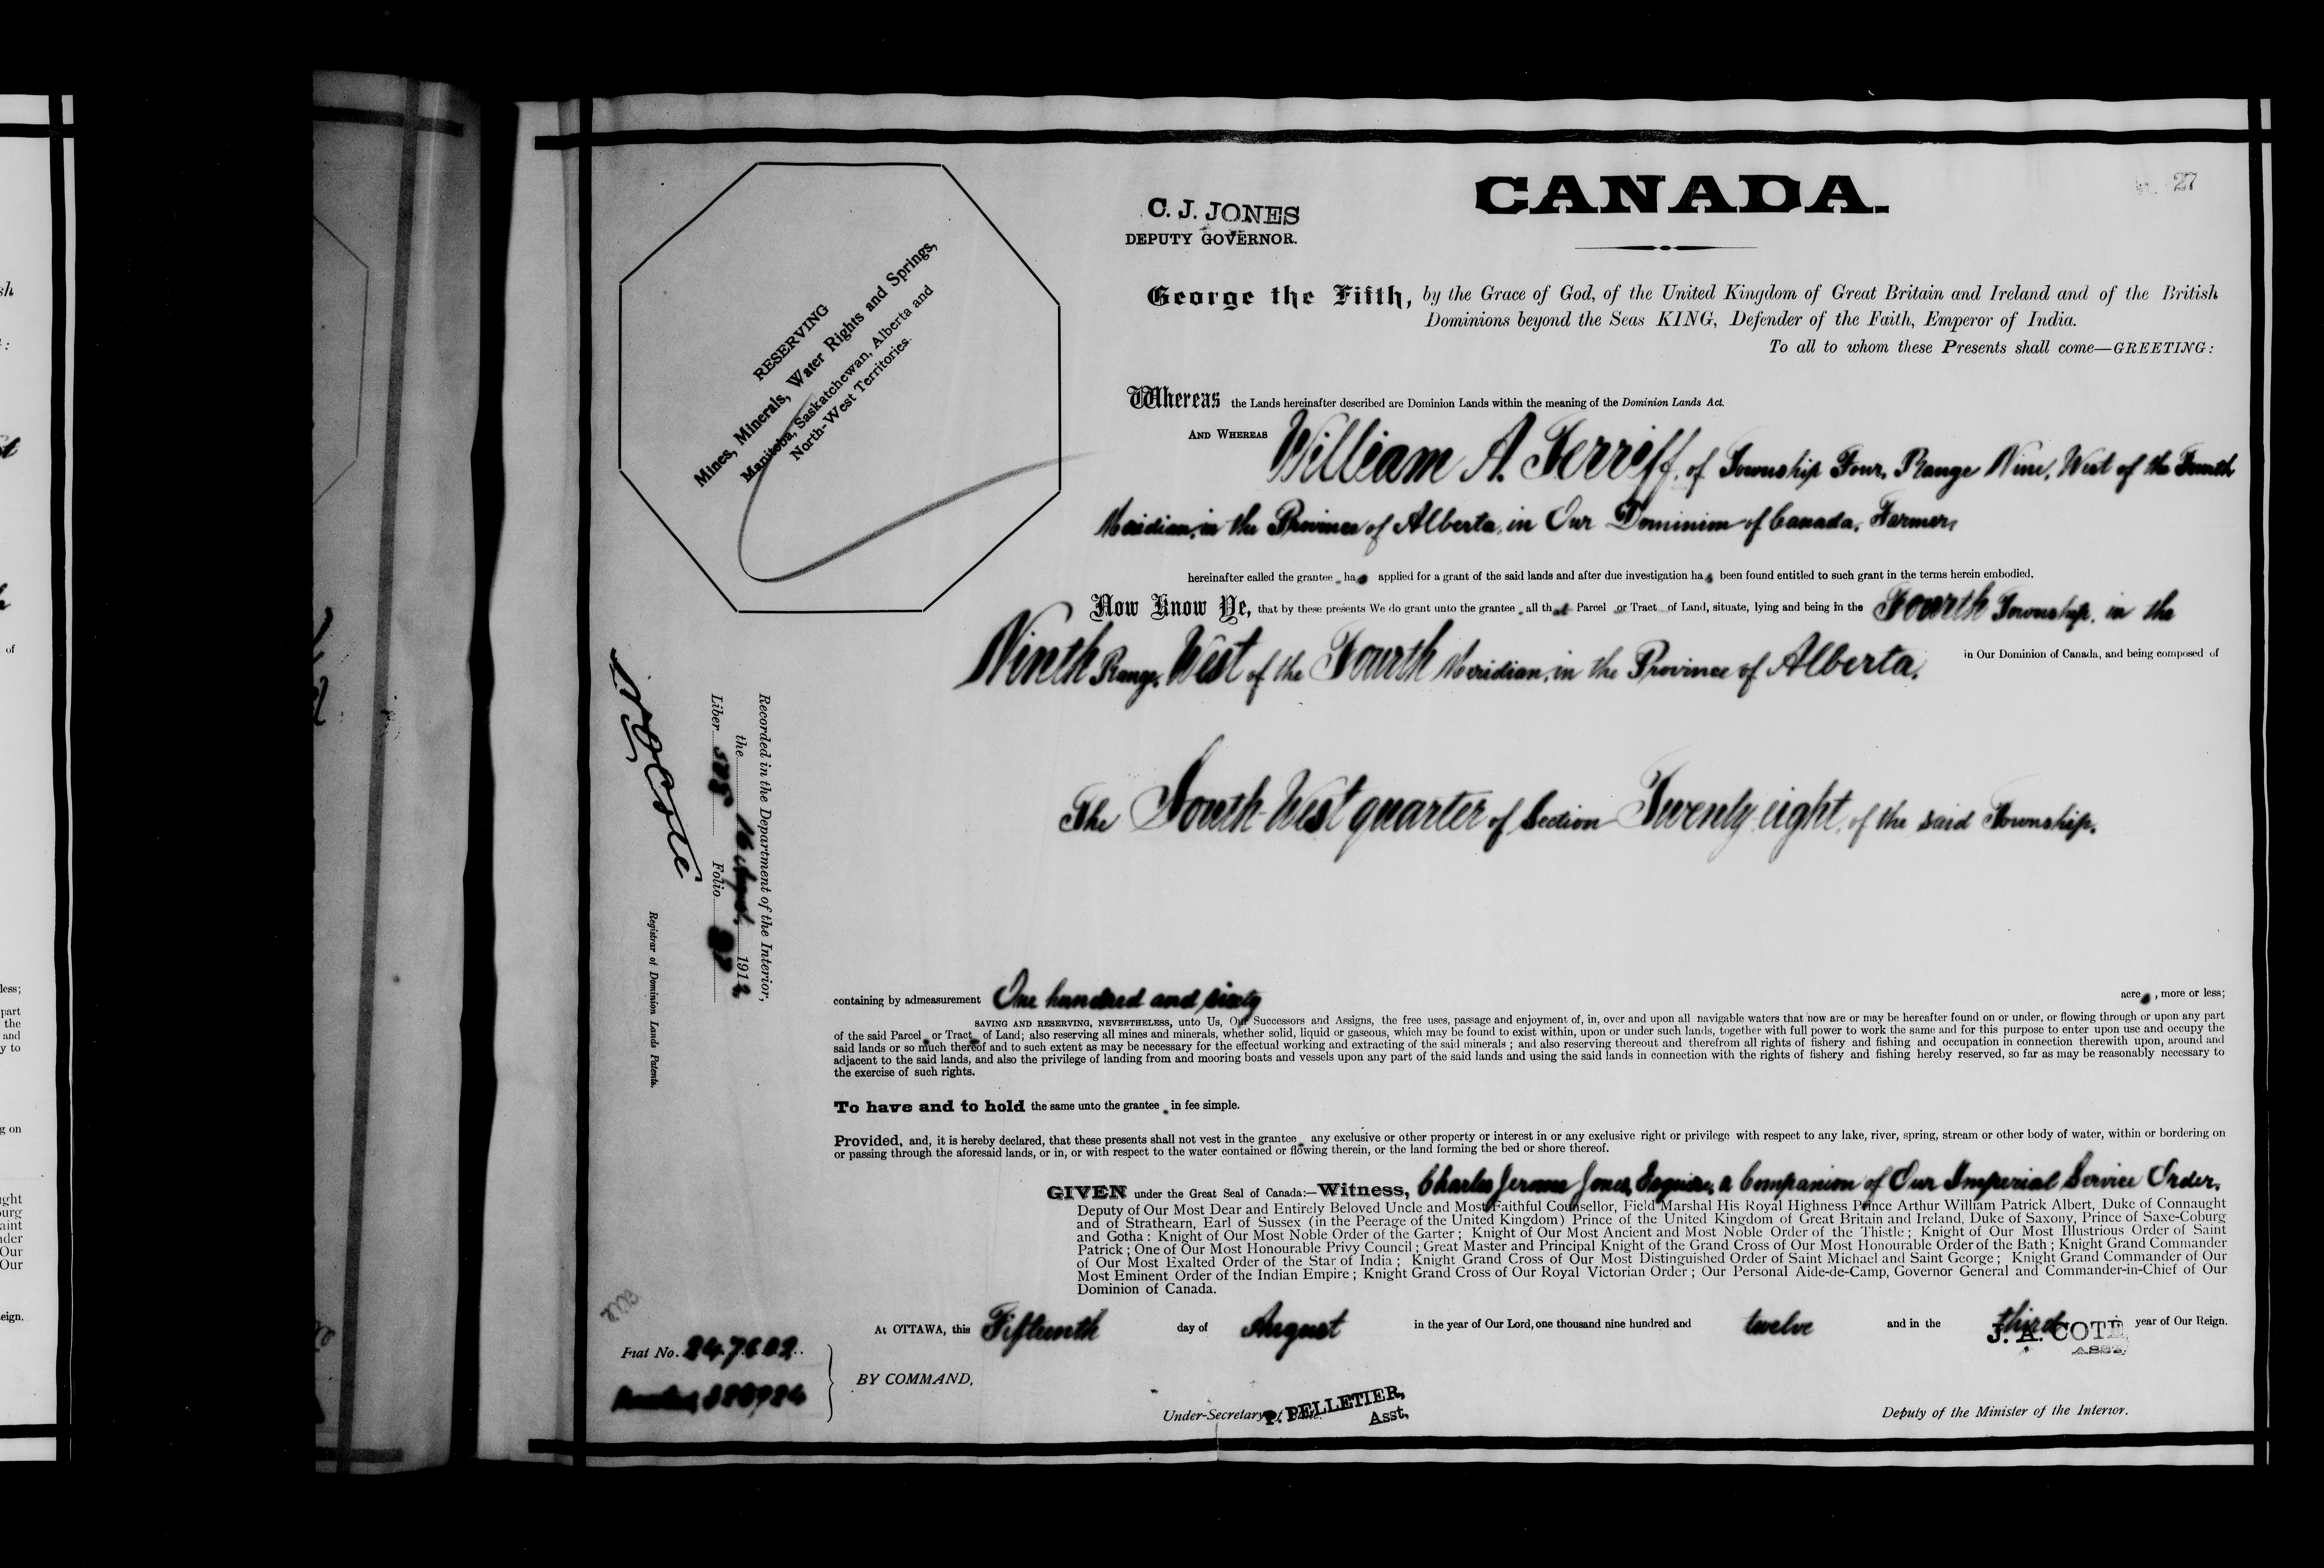 27
CANADA.
C. J. JONES
DEPUTY GOVERNOR.
RESERVING
Mines, Minerals, Water Rights and Springs,
Manitoba, Saskatchewan, Alberta and
North-West Territories.
George the Fifth, by the Grace of God, of the United Kingdom of Great Britain and Ireland and of the British
Dominions beyond the Seas KING, Defender of the Faith, Emperor of India.
To all to whom these Presents shall come—GREETING:
Whereas the Lands hereinafter described are Dominion Lands within the meaning of the Dominion Lands Act.
AND WHEREAS William A. Ferriff, of Township Four, Range Nine, West of the Fourth
Meridian, in the Province of Alberta, in Our Dominion of Canada, Farmer,
hereinafter called the grantee has applied for a grant of the said lands and after due investigation has been found entitled to such grant in the terms herein embodied.
Now Know Ye, that by these presents We do grant unto the grantee all that Parcel or Tract of Land, situate, lying and being in the Fourth Township, in the
Ninth Range, West of the Fourth Meridian, in the Province of Alberta, in Our Dominion of Canada, and being composed of
The South West quarter of Section Twenty-eight, of the said Township.
Recorded in the Department of the Interior,
the 16 August 1912
Liber 505 Folio 27
N O Coté
Registrar of Dominion Lands Patents.
containing by admeasurement One hundred and sixty acres, more or less;
SAVING AND RESERVING, NEVERTHELESS, unto Us, Our Successors and Assigns, the free uses, passage and enjoyment of, in, over and upon all navigable waters that now are or may be hereafter found on or under, or flowing through or upon any part
of the said Parcel or Tract of Land; also reserving all mines and minerals, whether solid, liquid or gaseous, which may be found to exist within, upon or under such lands, together with full power to work the same and for this purpose to enter upon use and occupy the
said lands or so much thereof and to such extent as may be necessary for the effectual working and extracting of the said minerals; and also reserving thereout and therefrom all rights of fishery and fishing and occupation in connection therewith upon, around and
adjacent to the said lands, and also the privilege of landing from and mooring boats and vessels upon any part of the said lands and using the said lands in connection with the rights of fishery and fishing hereby reserved, so far as may be reasonably necessary to
the exercise of such rights.
To have and to hold the same unto the grantee in fee simple.
Provided, and, it is hereby declared, that these presents shall not vest in the grantee any exclusive or other property or interest in or any exclusive right or privilege with respect to any lake, river, spring, stream or other body of water, within or bordering on
or passing through the aforesaid lands, or in, or with respect to the water contained or flowing therein, or the land forming the bed or shore thereof.
GIVEN under the Great Seal of Canada:—Witness, Charles Jerome Jones, Esquire, a Companion of Our Imperial Service Order,
Deputy of Our Most Dear and Entirely Beloved Uncle and Most Faithful Counsellor, Field Marshal His Royal Highness Prince Arthur William Patrick Albert, Duke of Connaught
and of Strathearn, Earl of Sussex (in the Peerage of the United Kingdom) Prince of the United Kingdom of Great Britain and Ireland, Duke of Saxony, Prince of Saxe-Coburg
and Gotha: Knight of Our Most Noble Order of the Garter; Knight of Our Most Ancient and Most Noble Order of the Thistle; Knight of Our Most Illustrious Order of Saint
Patrick; One of Our Most Honourable Privy Council; Great Master and Principal Knight of the Grand Cross of Our Most Honourable Order of the Bath; Knight Grand Commander
of Our Most Exalted Order of the Star of India; Knight Grand Cross of Our Most Distinguished Order of Saint Michael and Saint George; Knight Grand Commander of Our
Most Eminent Order of the Indian Empire; Knight Grand Cross of Our Royal Victorian Order; Our Personal Aide-de-Camp, Governor General and Commander-in-Chief of Our
Dominion of Canada.
At OTTAWA, this Fifteenth day of August in the year of Our Lord, one thousand nine hundred and twelve and in the third year of Our Reign.
J. A. COTE
ASST.
Fiat No. 247602
BY COMMAND,
P. PELLETIER,
Asst,
Under-Secretary of State.
Deputy of the Minister of the Interior.